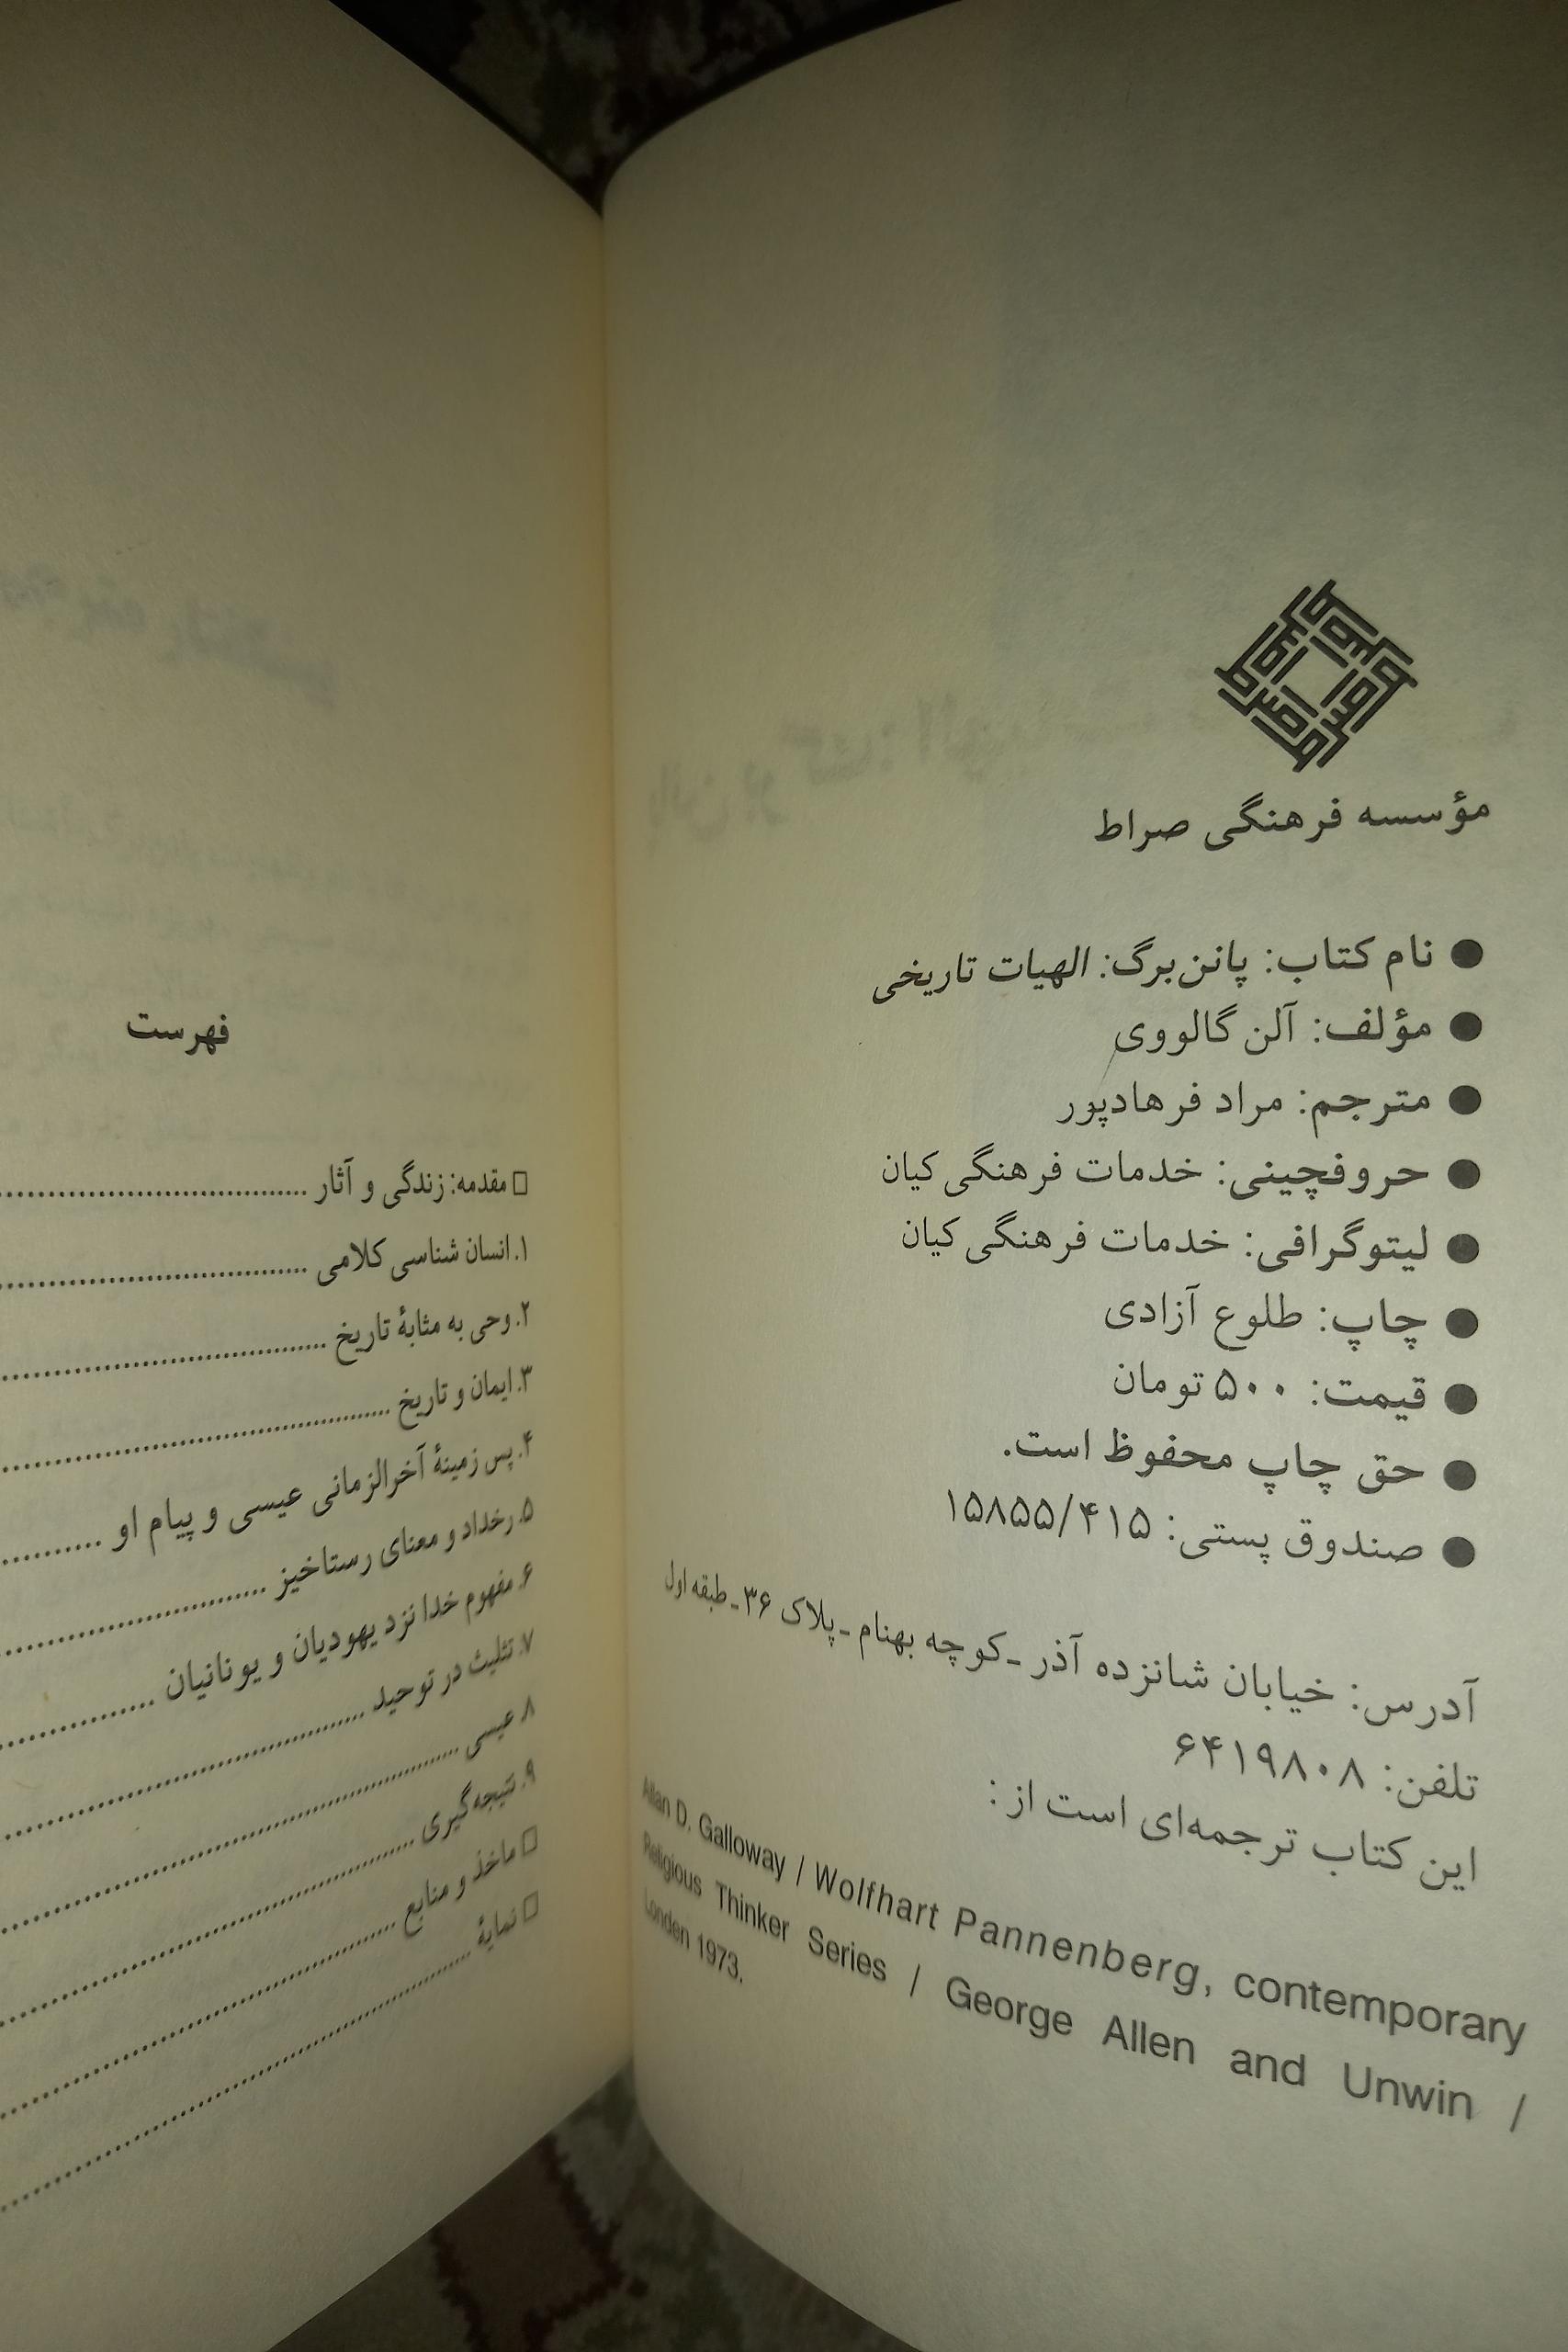 مؤسسه فرهنگی صراط
● نام کتاب: پانن‌برگ: الهیات تاریخی
● مؤلف: آلن گالووی
● مترجم: مراد فرهادپور
● حروفچینی: خدمات فرهنگی کیان
● لیتوگرافی: خدمات فرهنگی کیان
● چاپ: طلوع آزادی
● قیمت: ۵۰۰ تومان
● حق چاپ محفوظ است.
● صندوق پستی: ۱۵۸۵۵/۴۱۵
آدرس: خیابان شانزده آذر ـ کوچه بهنام ـ پلاک ۳۶ ـ طبقه اول
تلفن: ۶۴۱۹۸۰۸
این کتاب ترجمه‌ای است از:
Allan D. Galloway / Wolfhart Pannenberg, contemporary
Religious Thinker Series / George Allen and Unwin /
Londen 1973.
فهرست
□ مقدمه: زندگی و آثار ........................................
۱. انسان شناسی کلامی ........................................
۲. وحی به مثابهٔ تاریخ ........................................
۳. ایمان و تاریخ ........................................
۴. پس زمینهٔ آخرالزمانی عیسی و پیام او ....................
۵. رخداد و معنای رستاخیز ........................................
۶. مفهوم خدا نزد یهودیان و یونانیان ....................
۷. تثلیث در توحید ........................................
۸. عیسی ........................................
۹. نتیجه‌گیری ........................................
□ ماخذ و منابع ........................................
□ نمایهٔ ........................................